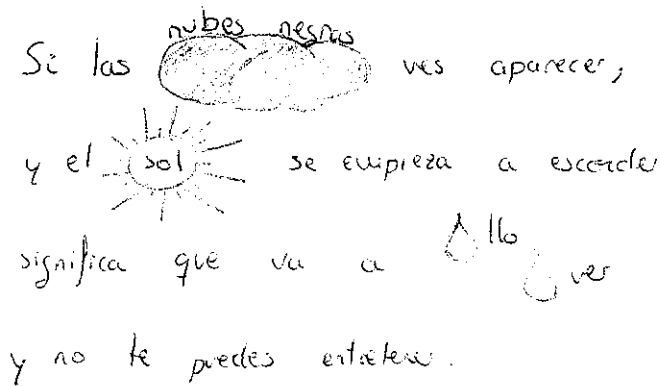 Si las nubes negras ves aparecer,
y el sol se empieza a esconder
significa que va a llo ver
y no te puedes entretener.